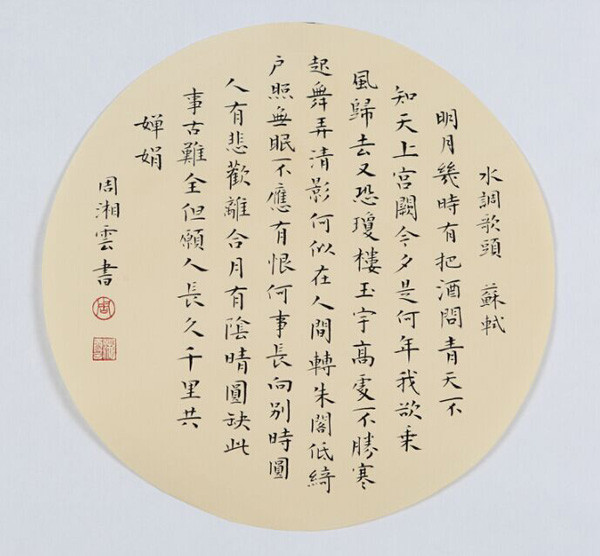 水調歌頭 蘇軾
明月幾時有把酒問青天不
知天上宮闕今夕是何年我欲乘
風歸去又恐瓊樓玉宇高處不勝寒
起舞弄清影何似在人間轉朱閣低綺
戶照無眠不應有恨何事長向別時圓
人有悲歡離合月有陰晴圓缺此
事古難全但願人長久千里共
嬋娟
周湘雲書
周